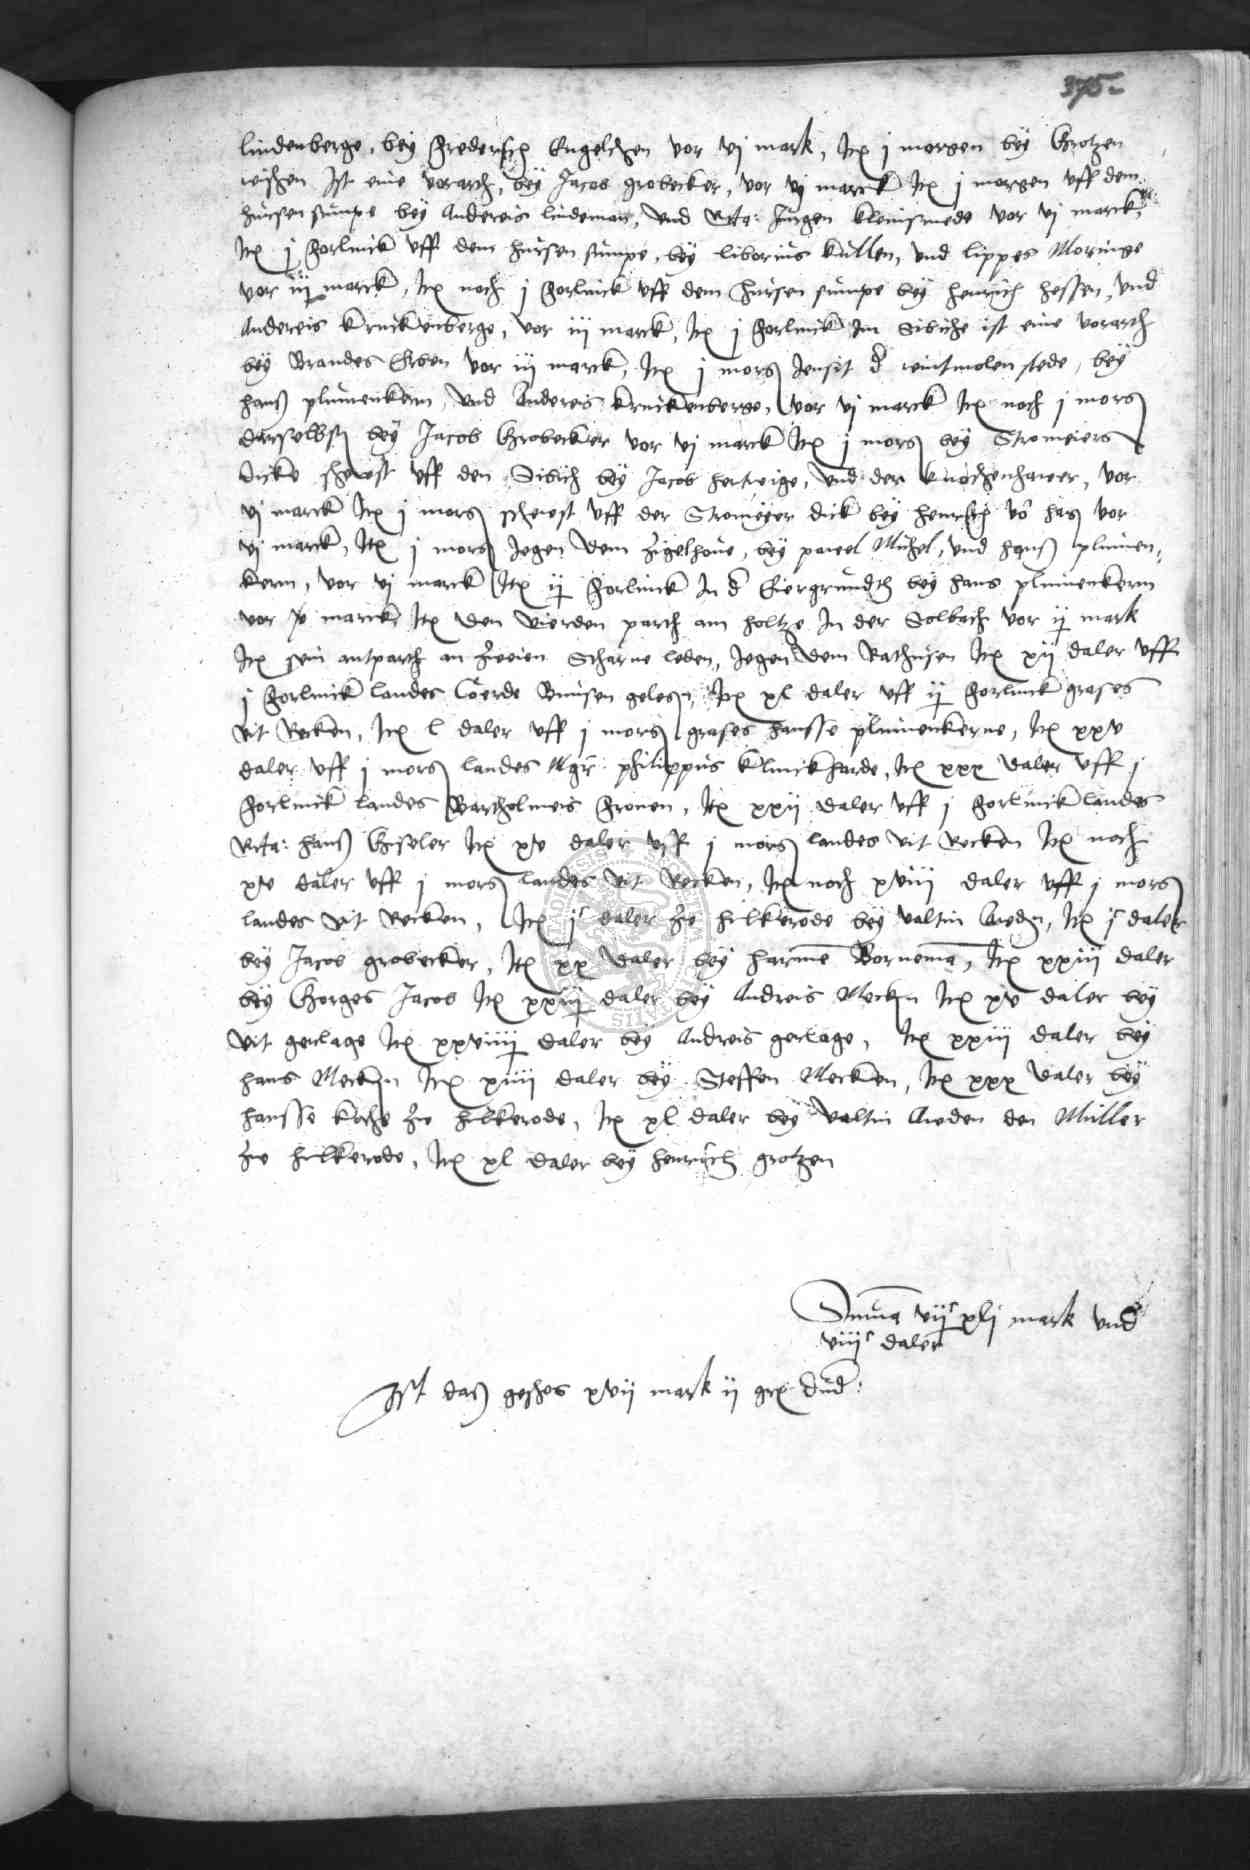 375.
lindenberge, bey Frederich Engelchen vor vj mark, Itz j morgen bey Grotzen
wischen Ist eine vorarth, bey Jacob grobecker, vor vj marck Itz j morgen vff dem
hursen sumpe bey Andereis lindeman, vnd Rtta: Jurgen kleinsmede vor vj marck,
Itz j Forlinck vff dem hursen sumpe, bey liborius kullen, vnd lippes Moringe
vor iij marck, Itz noch j Forlinck vff dem hursen sumpe bey henrich hessen, vnd
Andereis kruckenberge, vor iij marck, Itz j Forlinck Im Sibiche ist eine vorarth
bey Brandes Erben vor iij marck, Itz j morg Jensit d wintmolen stede, bey
hans plumenkern, vnd Andereis kruckenberge, vor vj marck Itz noch j morg
darselbst bey Jacob Grobecker vor vj marck Itz j morg bey Stromeiers
dicke schoest vff den Sibich bey Jacob hertwige, vnd der knochenhawer, vor
vj marck Itz j morg schoest vff der Stromeyer dick bey henrich vo has vor
vj marck, Itz j morg Jegen dem Zigelhove, bey pawel Muhel, vnd hans plumen,
kern, vor vj marck Itz ij Forlinck In d Giergrundth bey hans plumenkern
vor v marck Itz den vierden parth am holtze In der Solbach vor ij mark
Itz sein antparth an Zweien Scharne leden, Jegen dem Rathusen Itz xij daler vff
j Forlinck landes Coerde Bunsen gelegen, Itz xl daler vff ij Forlinck grases
vit Recken, Itz l daler vff j morg grases hansse plumenkerne, Itz xxv
daler vff j morg landes Mgr: philippus klinckharde, Itz xxx daler vff j
Forlinck landes Bartholmeis Fronen, Itz xxij daler vff j Forlinck landes
Rtta: hans Giseler Itz xv daler vff j morg landes vit Recken Itz noch
xv daler vff j morg landes vit Recken, Itz noch xviij daler vff j morg
landes vit Recken, Itz jc daler Zu hilkerode bey valtin Aroden, Itz jc daler
bey Jacob grobecker, Itz xx daler bey harme Bornema, Itz xxiij daler
bey Gorges Jacob Itz xxiij daler bey Andreis Mecken Itz xv daler bey
vit gerlage Itz xxviiij daler bey Andreis gerlage, Itz xxiij daler bey
hans Mecken Itz xiiij daler bey Steffen Mecken, Itz xxx daler bey
hansse koche Zu hilkerode, Itz xl daler bey valtin Aroden den Muller
Zu hilkerode, Itz xl daler bey henrich grotzen
Summa vijc xlj mark vnd
viijc daler
Ist das geschos xvij mark ij grz dud: